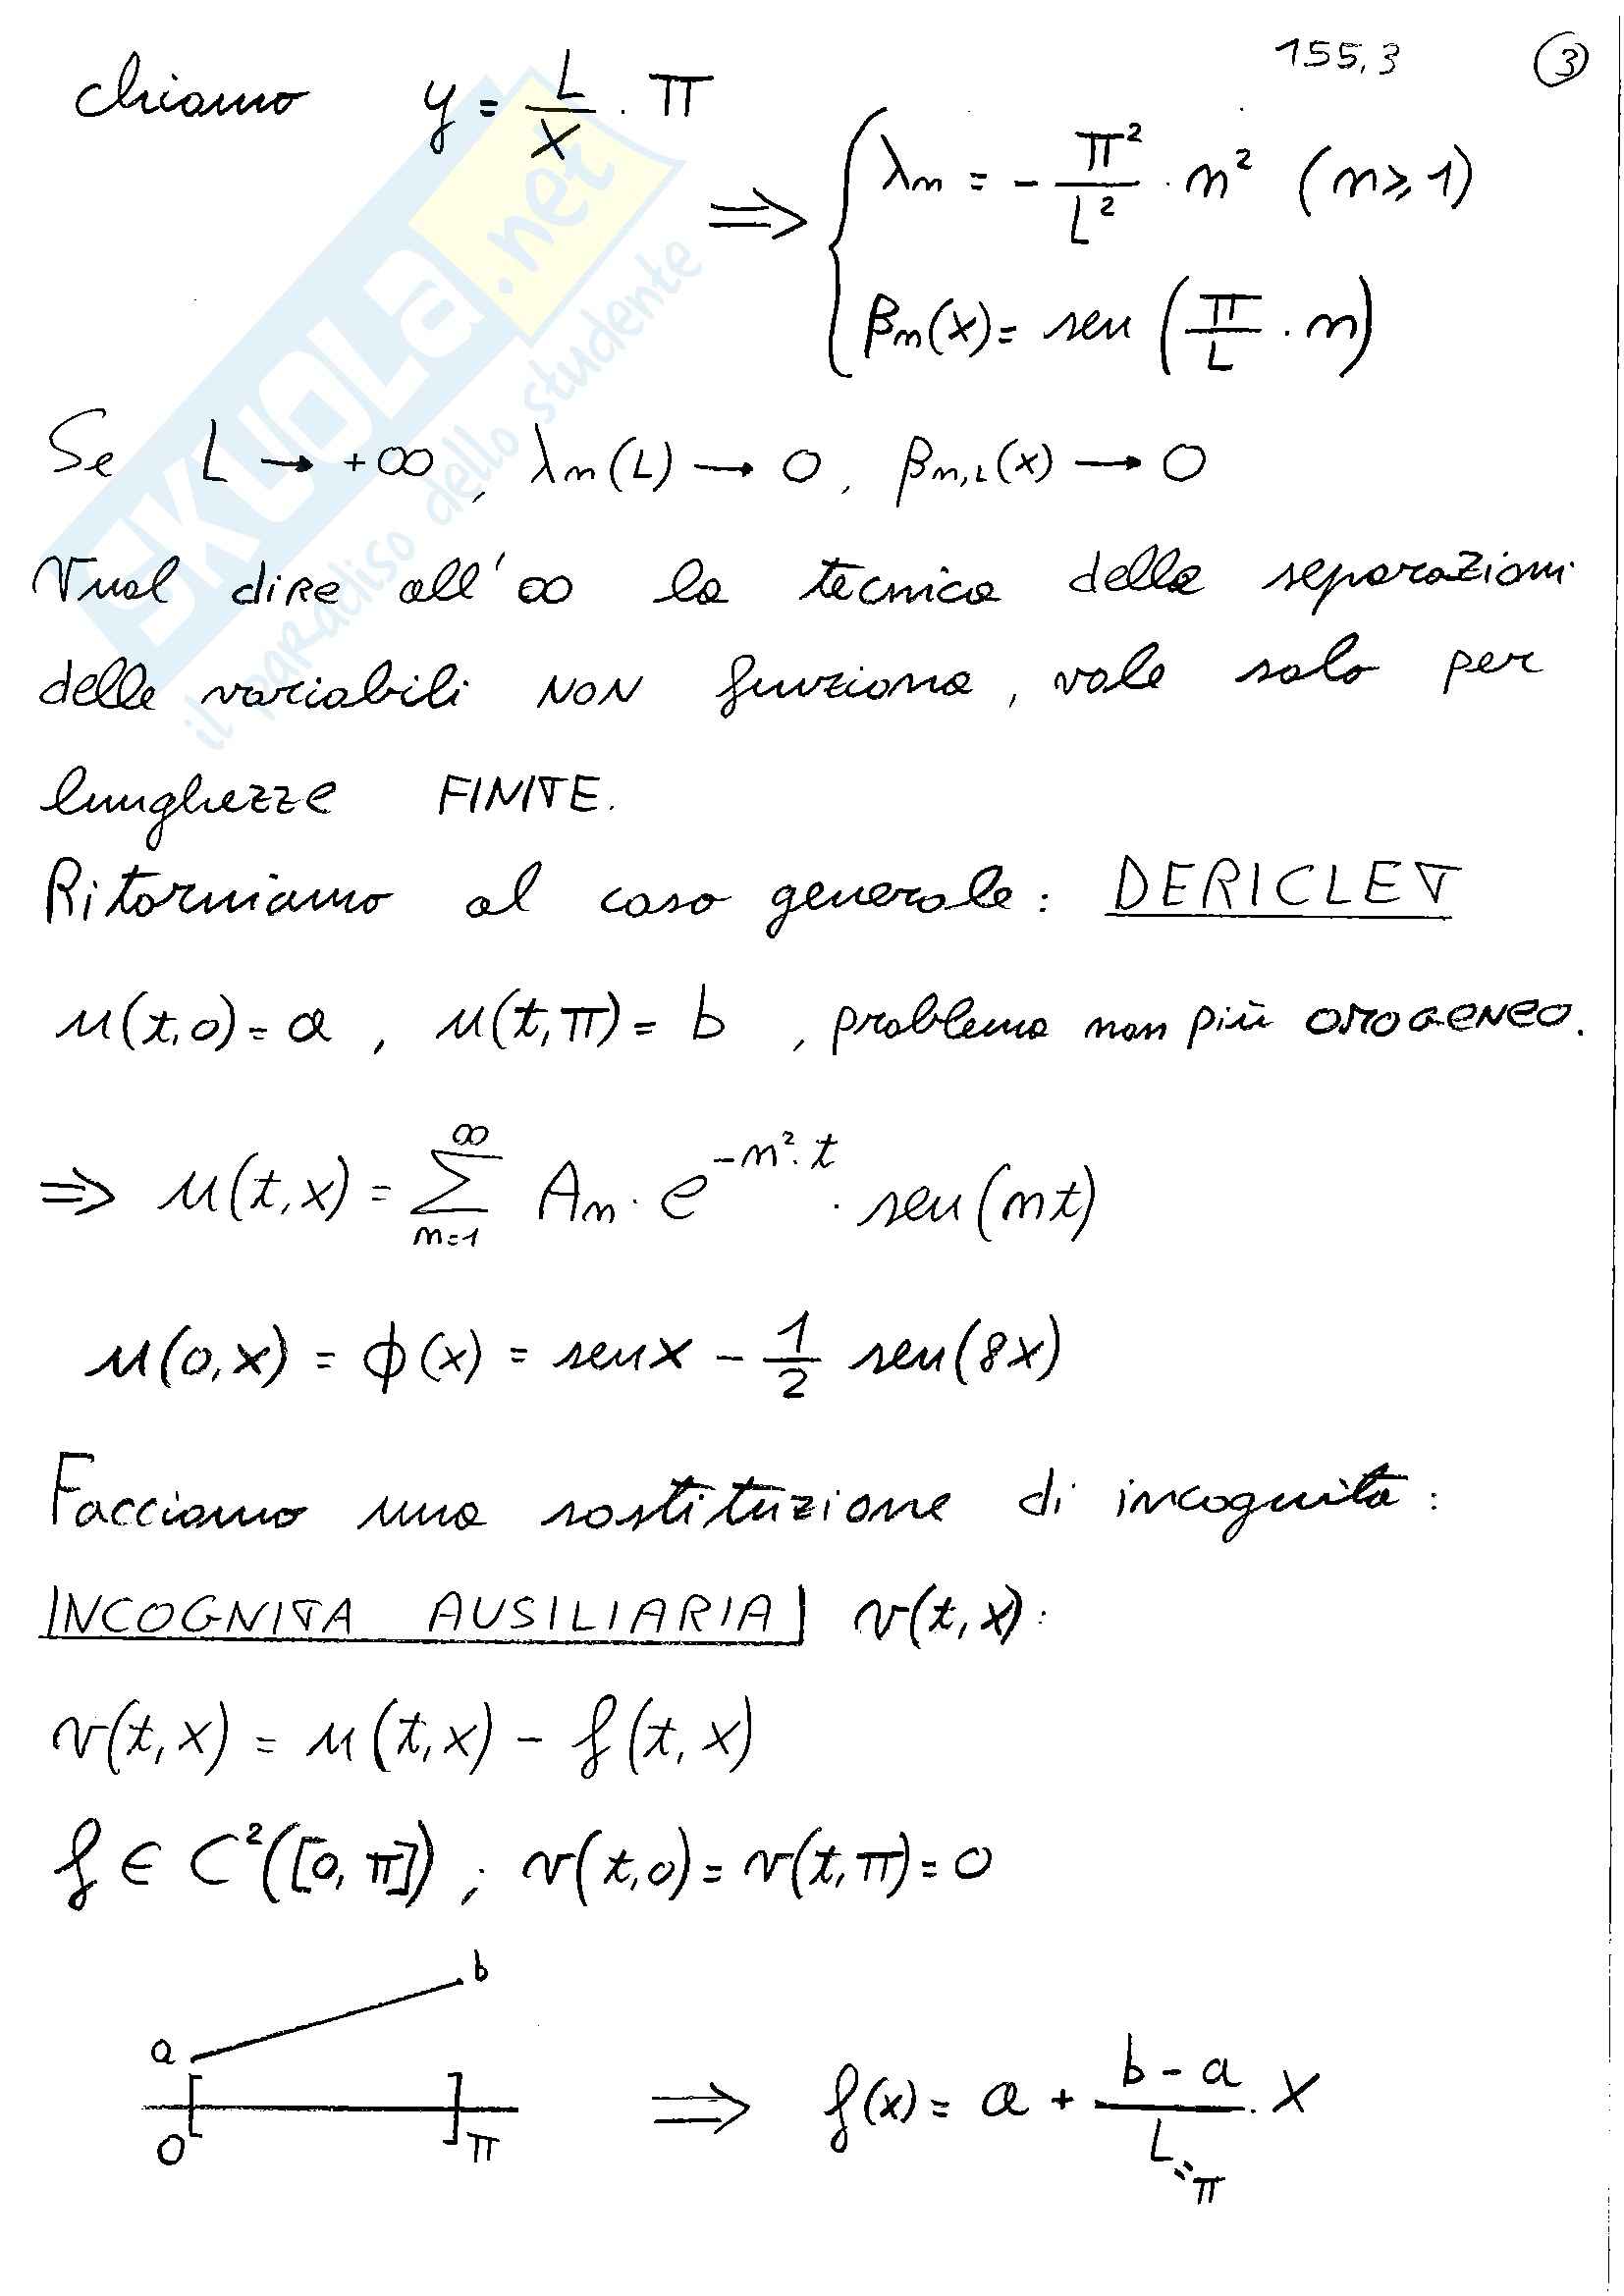 155,3 ③
chiamo y = L/X · π
⇒ { λn = - π²/L² · n² (n ⩾ 1)
βn(x) = sen (π/L · n)
Se L → +∞, λn(L) → 0, βn,L(x) → 0
Vual dire all'∞ la tecnica della separazioni
delle variabili NON funziona, vale solo per
lunghezze FINITE.
Ritorniamo al caso generale: DERICLET
u(t,0) = a, u(t,π) = b, problema non più OMOGENEO.
⇒ u(t,x) = ∑_{n=1}^{∞} An · e^{-n²·t} · sen(nt)
u(0,x) = ϕ(x) = senx - 1/2 sen(8x)
Facciamo una sostituzione di incognita:
INCOGNITA AUSILIARIA v(t,x):
v(t,x) = u(t,x) - f(t,x)
f ∈ C²([0,π]); v(t,0) = v(t,π) = 0
a b
0 π
⇒ f(x) = a + (b-a)/L · X
= π
SKUOLA.net
il paradiso dello studente